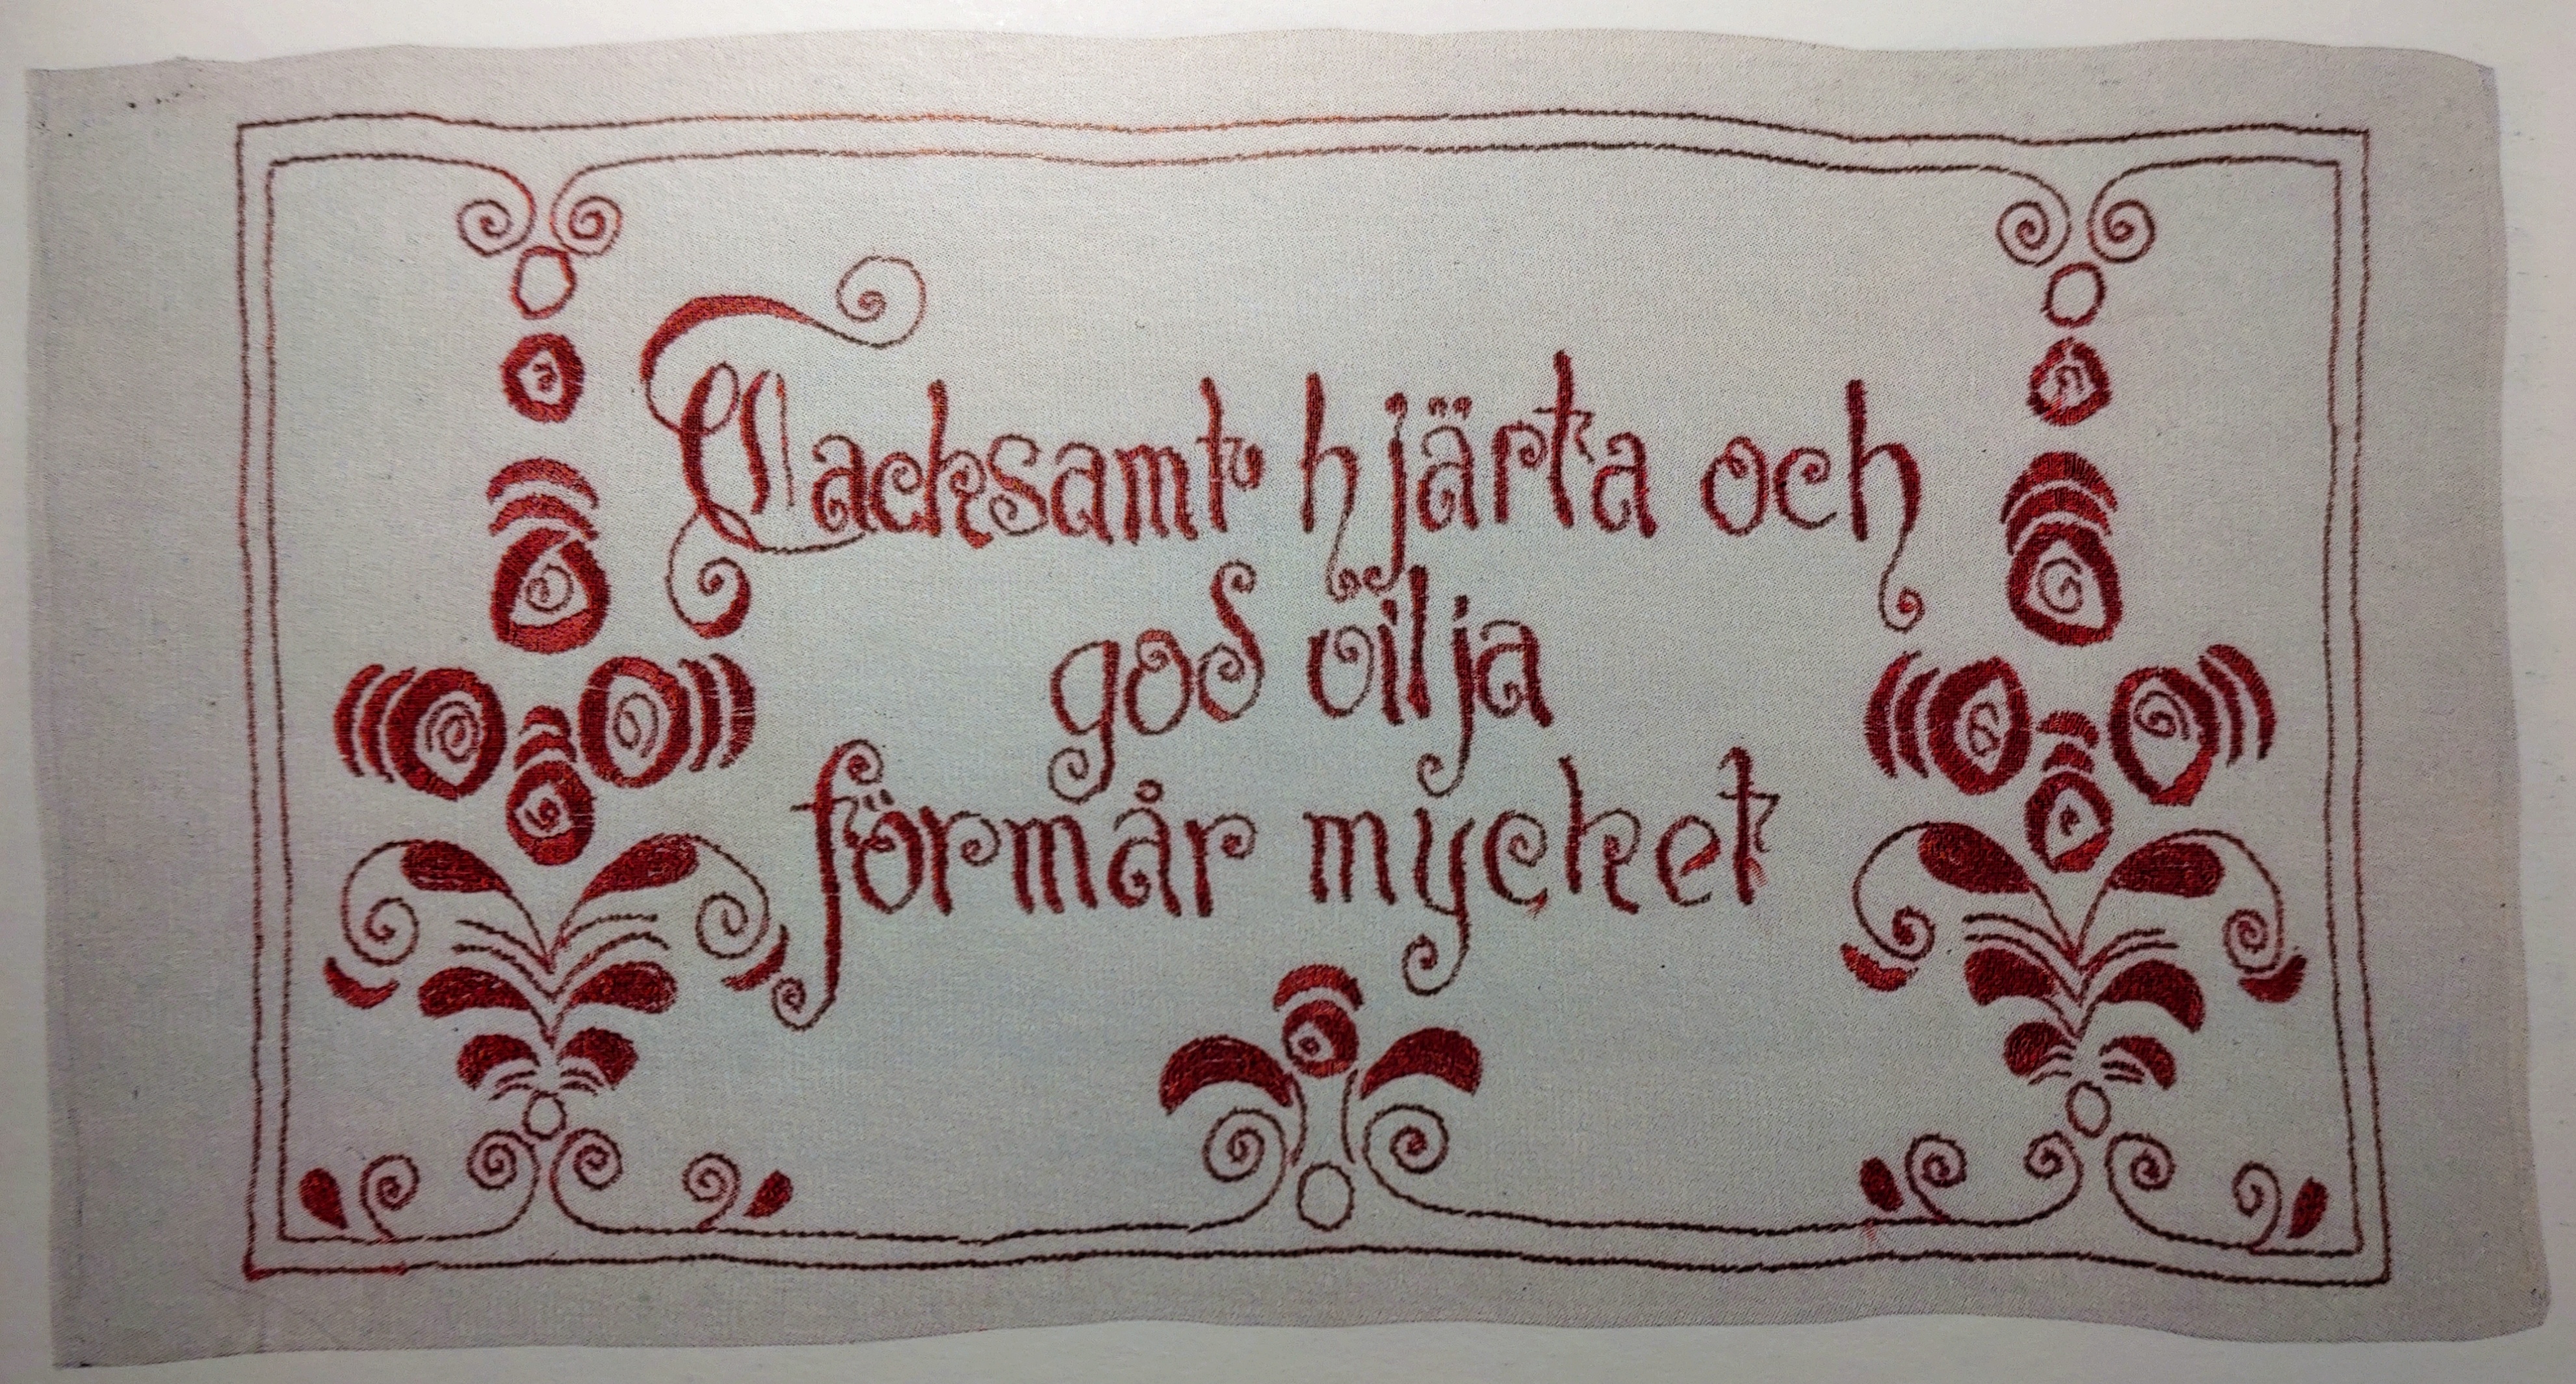 Tacksamt hjärta och
god vilja
förmår mycket